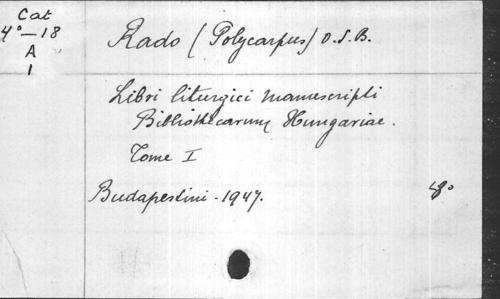 Cat
4°-18
A
1
Rado (Polycarpus) O.S.B.
Libri liturgici manuscripti
Bibliothecarum Hungariae.
Tome I
Budapestini - 1947.